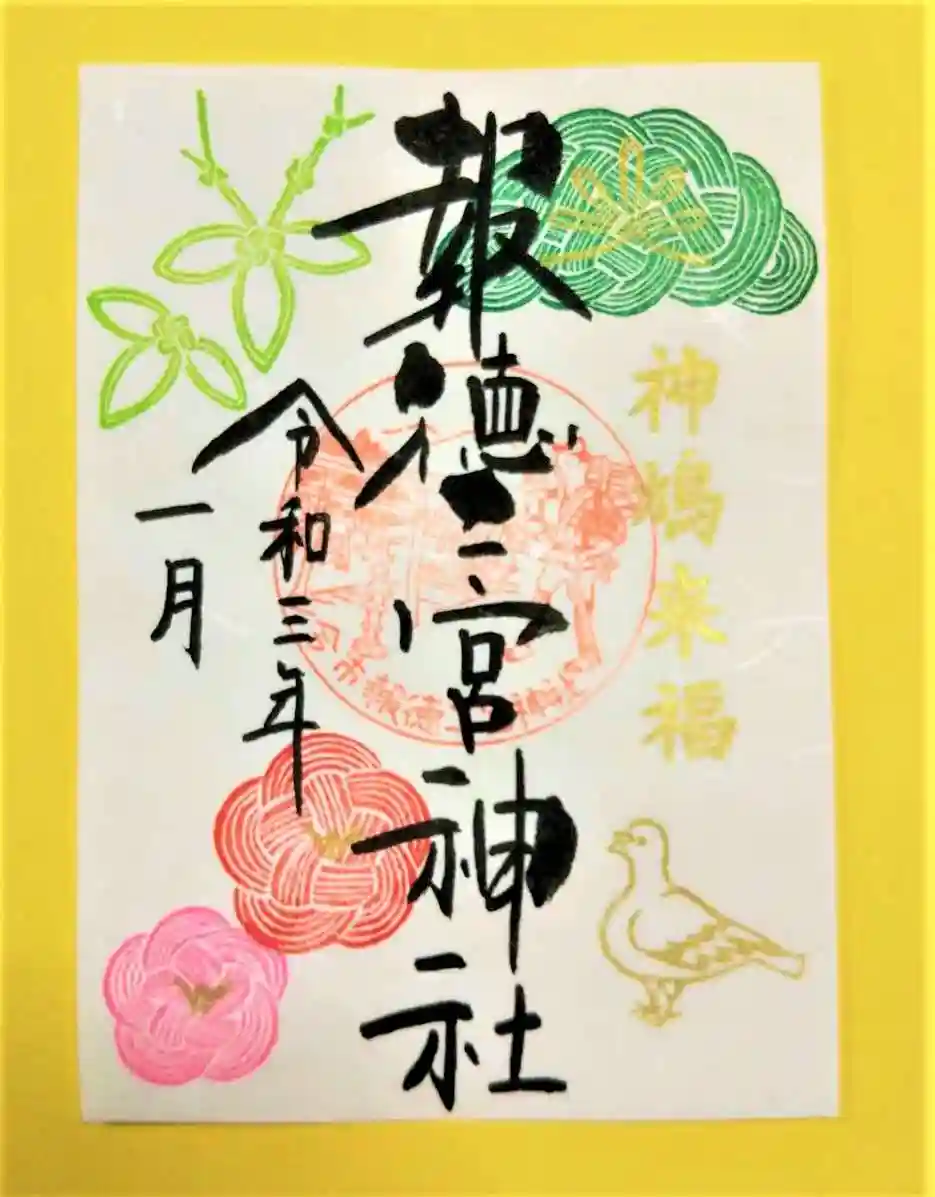 神鳩来福
報徳二宮神社
令和三年
一月
市報徳